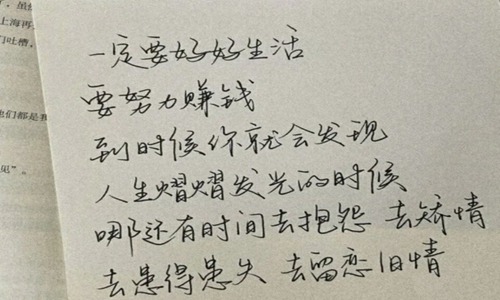 一定要好好生活
要努力赚钱
到时候你就会发现
人生熠熠发光的时候
哪还有时间去抱怨 去矫情
去患得患失 去留恋旧情
上海再
们吐槽,
他们都是我
见”。